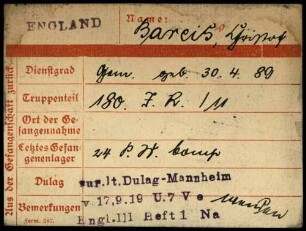 ENGLAND
Name:
Bareiß, Christof
Aus der Gefangenschaft zurück.
Dienstgrad Gem. geb. 30. 4. 89
Truppenteil 180. I. R. / 11
Ort der Ge-
fangennahme
Letztes Gefan-
genenlager 24 P. W. Comp
Dulag zur.lt.Dulag-Mannheim
v.17.9.19 U.7 V e
Bemerkungen Engl.III Heft 1 Na
Form.